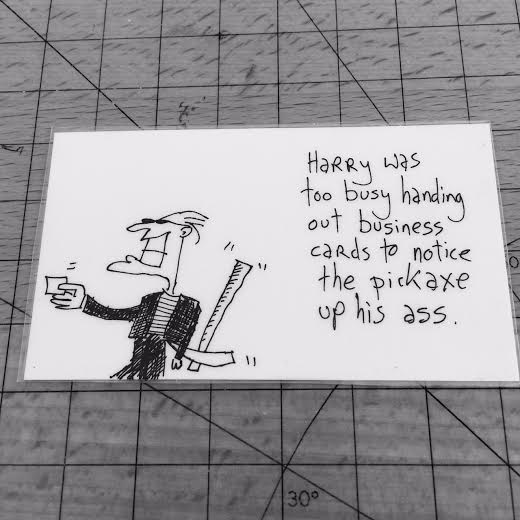 HARRY WAS
too busy handing
out business
cards to notice
the pickaxe
up his ass.
30°